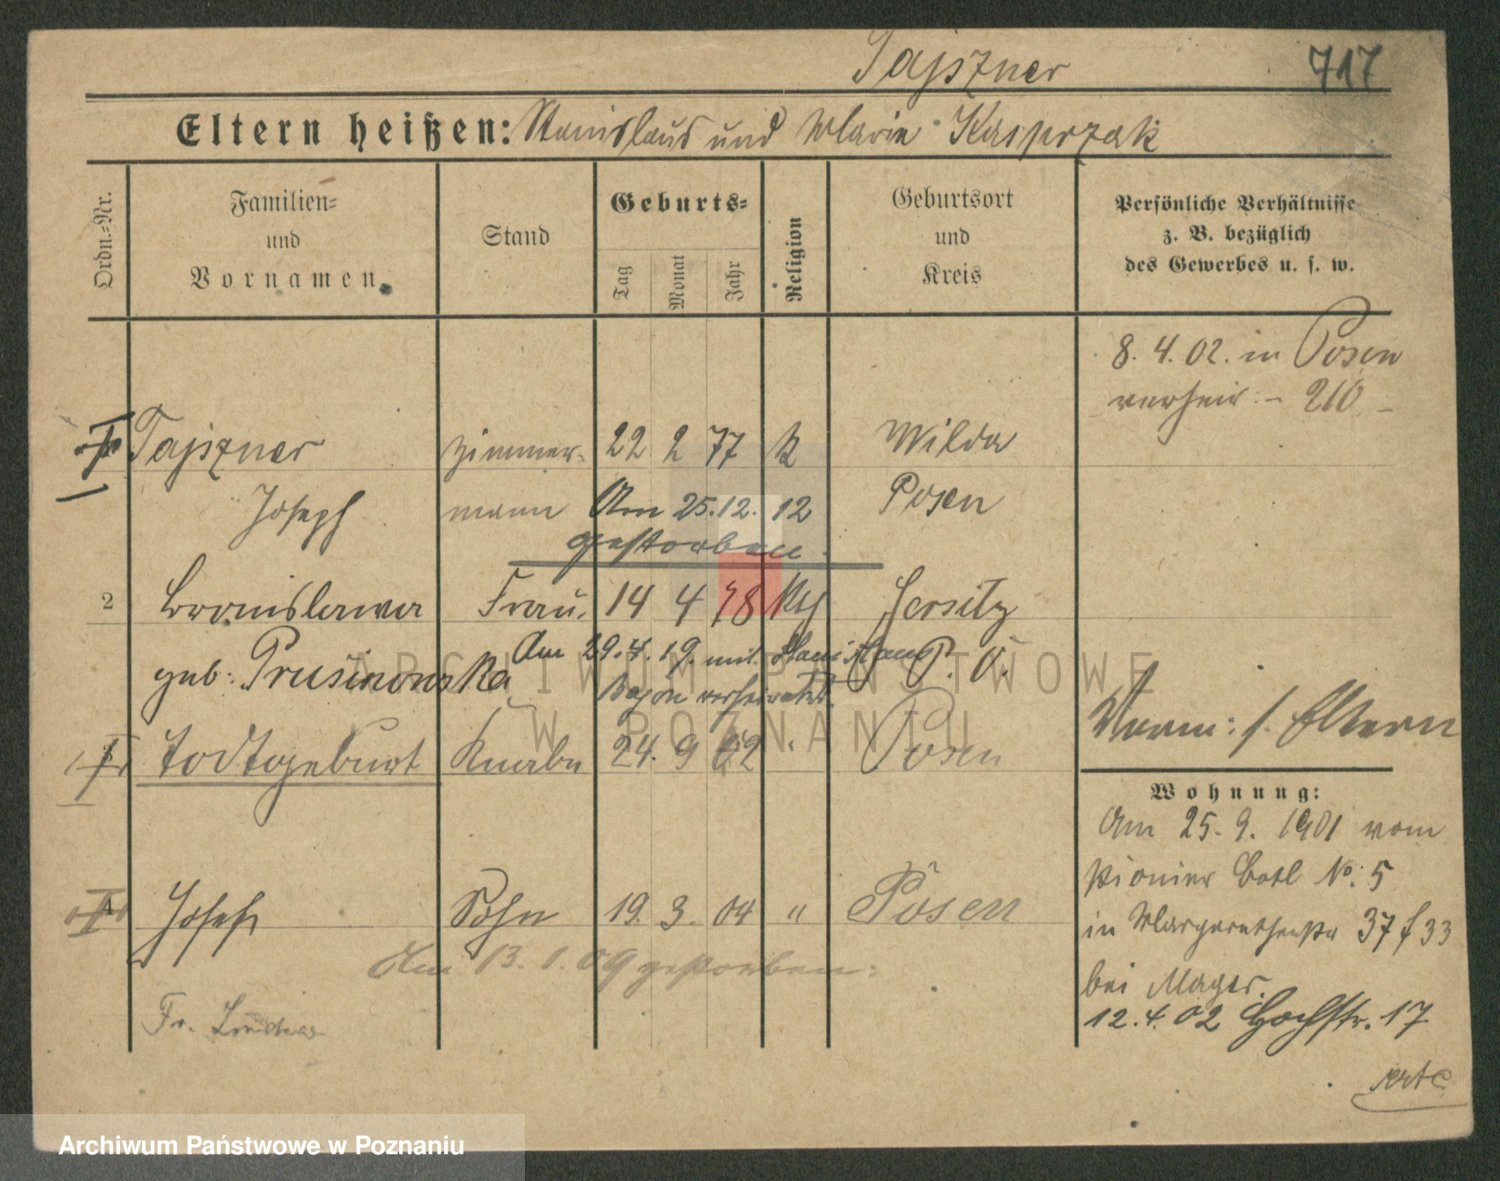 Tajszner 717
Eltern heißen: Stanislaus und Marie Kasprzak
Ordn.-Nr.
Familien- und Vornamen
Stand
Geburts-
Tag Monat Jahr
Religion
Geburtsort und Kreis
Persönliche Verhältnisse
z. B. bezüglich
des Gewerbes u. s. w.
8. 4. 02. in Posen
verheir. - 210 -
Tajszner Zimmer- 22 2 77 k Wilda
Joseph mann Am 25.12.12 Posen
gestorben.
2 Bronislawa Frau 14 4 78 Jersitz
geb. Prusinowska Am 29.4.19. mit Stanislaus P. O.
verheiratet.
Verm: s. Eltern
Todtgeburt Knabe 24. 9 02 " Posen
Wohnung:
Am 25. 9. 1901 vom
Pionier Batl No. 5
in Margarethenstr 37 f 33
bei Mager.
12. 4. 02 Hochstr. 17
Josef Sohn 19. 3. 04 " Posen
Am 13. 1. 09 gestorben.
Fr.
ARCHIWUM PAŃSTWOWE
W POZNANIU
Archiwum Państwowe w Poznaniu